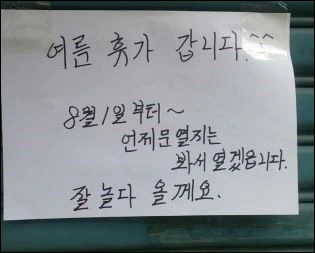 여름 휴가 갑니다.^^
8월1일부터~
언제문열지는
봐서열겠읍니다.
잘 놀다 올께요.